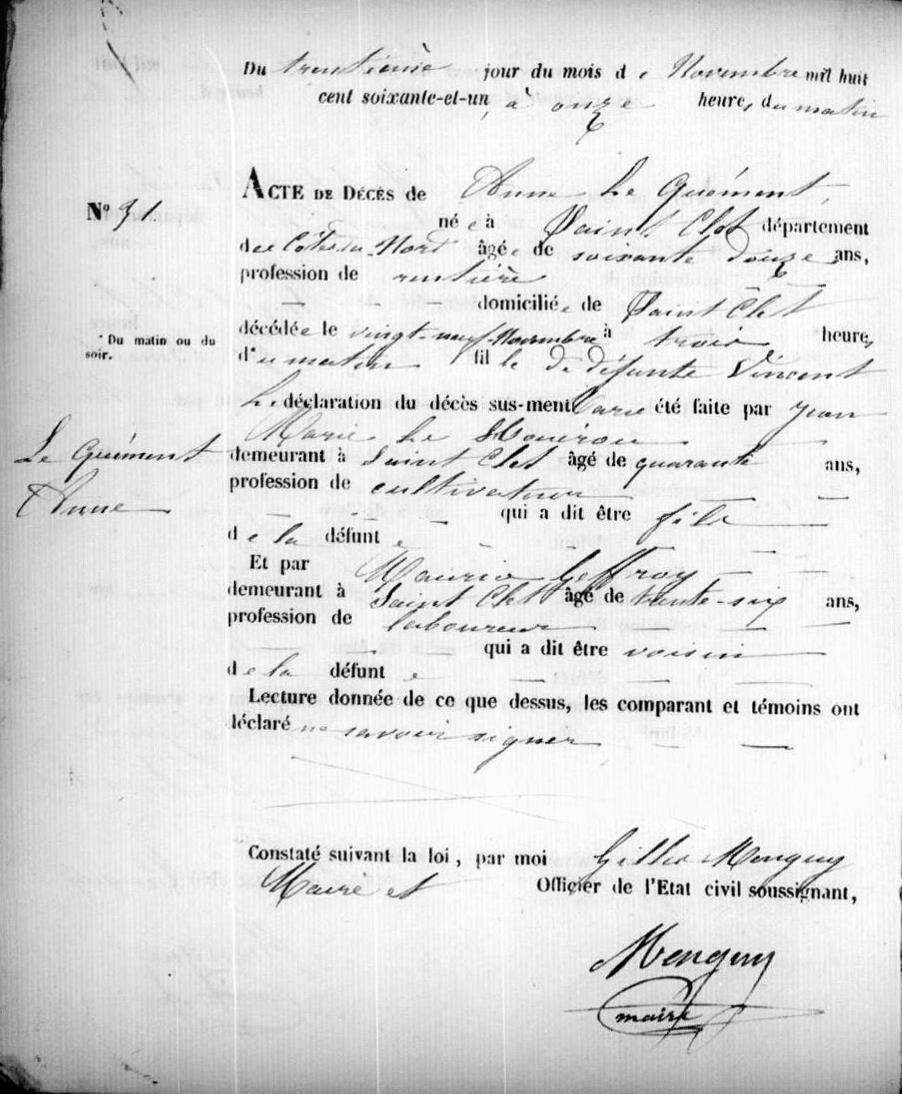 Du trentième jour du mois de Novembre mil huit
cent soixante-et-un, à onze heures du matin
ACTE DE DÉCÈS de Anne Le Quément,
Nº 31.
née à Saint Clet département
des Côtes du Nord âgée de soixante douze ans,
profession de rentière
domiciliée de Saint Clet
décédée le vingt-neuf Novembre à trois heures
* Du matin ou du
soir.
d* u matin fille de défunte Vincent
Le déclaration du décès sus-ment été faite par Jean
Marie Le
Le Quément
Anne
demeurant à Saint Clet âgé de quarante ans,
profession de cultivateur
qui a dit être fils
de la défunte
Et par Maurice Geffroy
demeurant à Saint Clet âgé de trente-six ans,
profession de laboureur
qui a dit être voisin
de la défunte
Lecture donnée de ce que dessus, les comparant et témoins ont
déclaré ne savoir signer
Constaté suivant la loi, par moi Gilles Menguy
Maire et Officier de l'Etat civil soussignant,
Menguy
maire